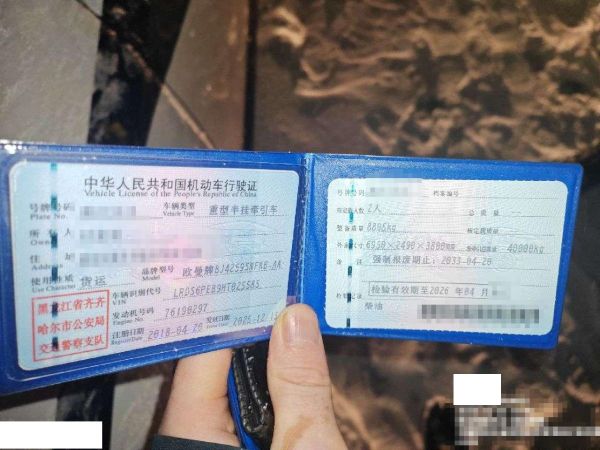 中华人民共和国机动车行驶证
Vehicle License of the People's Republic of China
号牌号码
Plate No.
车辆类型
Vehicle Type
重型半挂牵引车
所有人
Owner
住址
使用性质
Use Character
货运
品牌型号
欧曼牌
车辆识别代号
VIN
发动机号码
Engine No.
76190297
注册日期
Register Date
2018-04-20
发证日期
Issue Date
黑龙江省齐齐
哈尔市公安局
交通警察支队
号牌号码
档案编号
2人
总质量
整备质量
8805kg
核定载质量
外廓尺寸
6950×2490×3800mm
40000kg
备注
强制报废期止:2033-04-20
检验记录
检验有效期至2026年04月
柴油